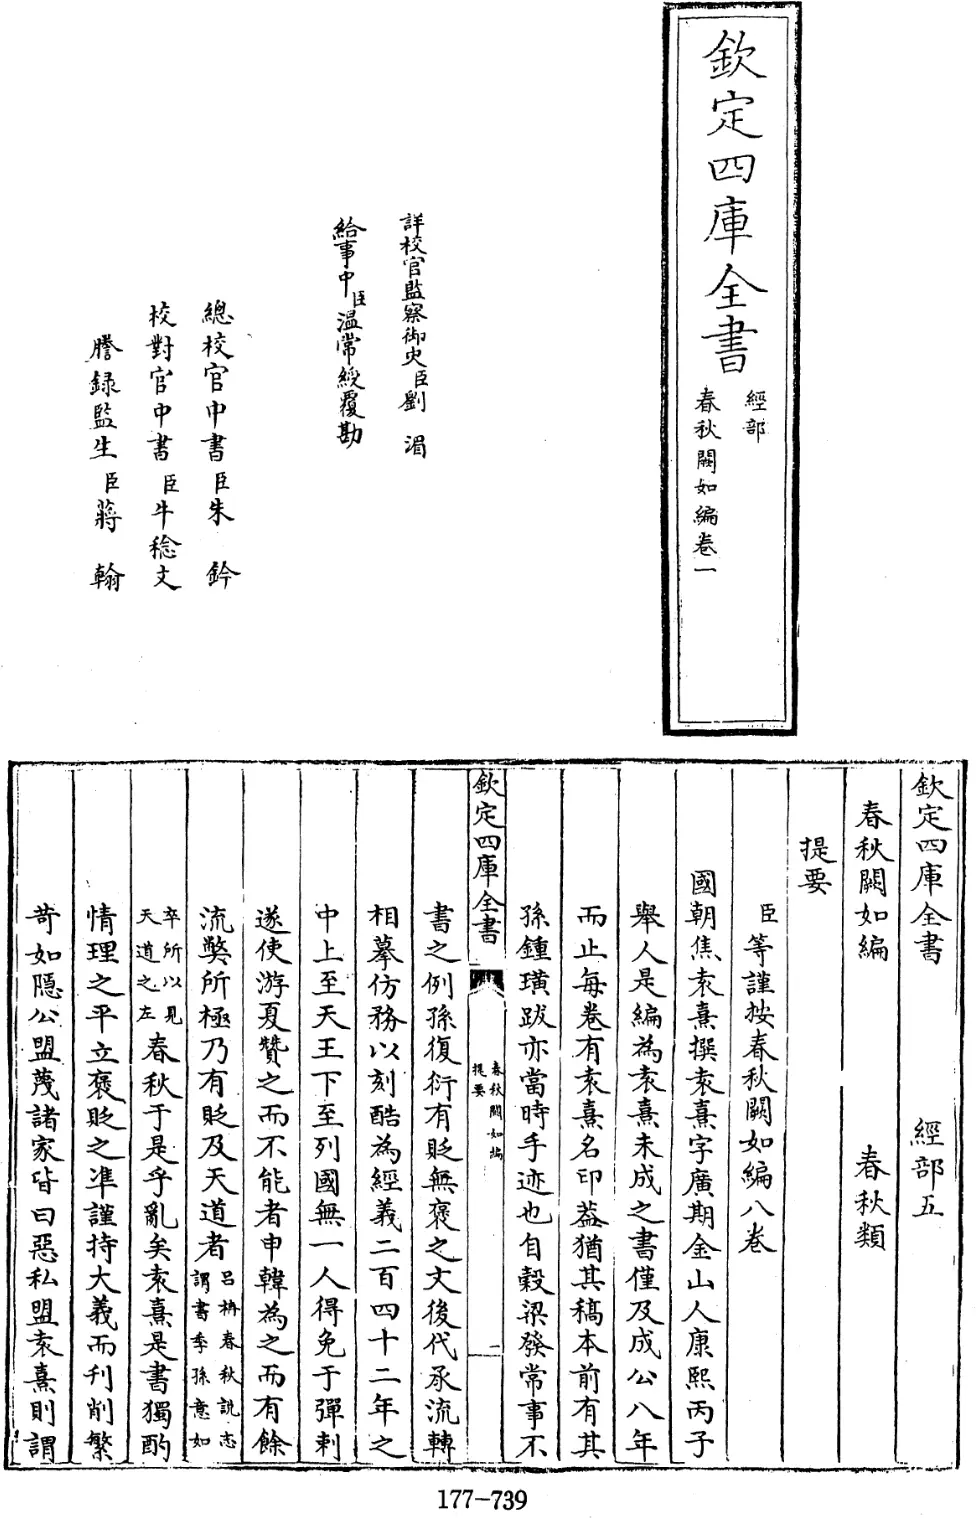 欽定四庫全書
經部
春秋闕如編卷一
詳校官監察御史臣劉湄
給事中臣溫常綬覆勘
總校官中書臣朱鈐
校對官中書臣牛稔文
謄録監生臣蔣翰
欽定四庫全書 經部五
春秋闕如編 春秋類
提要
臣等謹按春秋闕如編八卷
國朝焦袁熹撰袁熹字廣期金山人康熙丙子
舉人是編為袁熹未成之書僅及成公八年
而止每卷有袁熹名印葢猶其稿本前有其
孫鍾璜跋亦當時手迹也自穀梁發常事不
欽定四庫全書
春秋闕如編
提要
一
書之例孫復衍有貶無褒之文後代承流轉
相摹仿務以刻酷為經義二百四十二年之
中上至天王下至列國無一人得免于彈刺
遂使游夏贊之而不能者申韓為之而有餘
流獘所極乃有貶及天道者呂柟春秋說志謂書季孫意如
卒所以見天道之左春秋于是乎亂矣袁熹是書獨酌
情理之平立褒貶之準謹持大義而刋削繁
苛如隱公盟蔑諸家皆曰惡私盟袁熹則謂
177-739